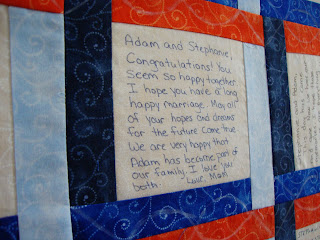 Adam and Stephanie,
Congratulations! You
seem so happy together.
I hope you have a long
happy marriage. May all
of your hopes and dreams
for the future come true.
We are very happy that
Adam has become part of
our family. I love you
both. Love, Mom